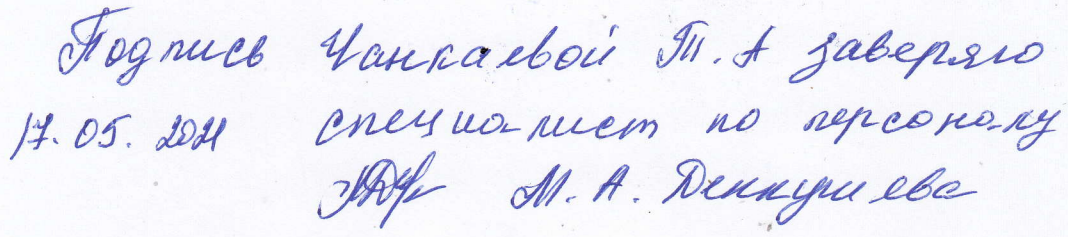 Подпись Чанкаевой Т. А заверяю
17.05.2021 специалист по персоналу
М. А. Деккушева